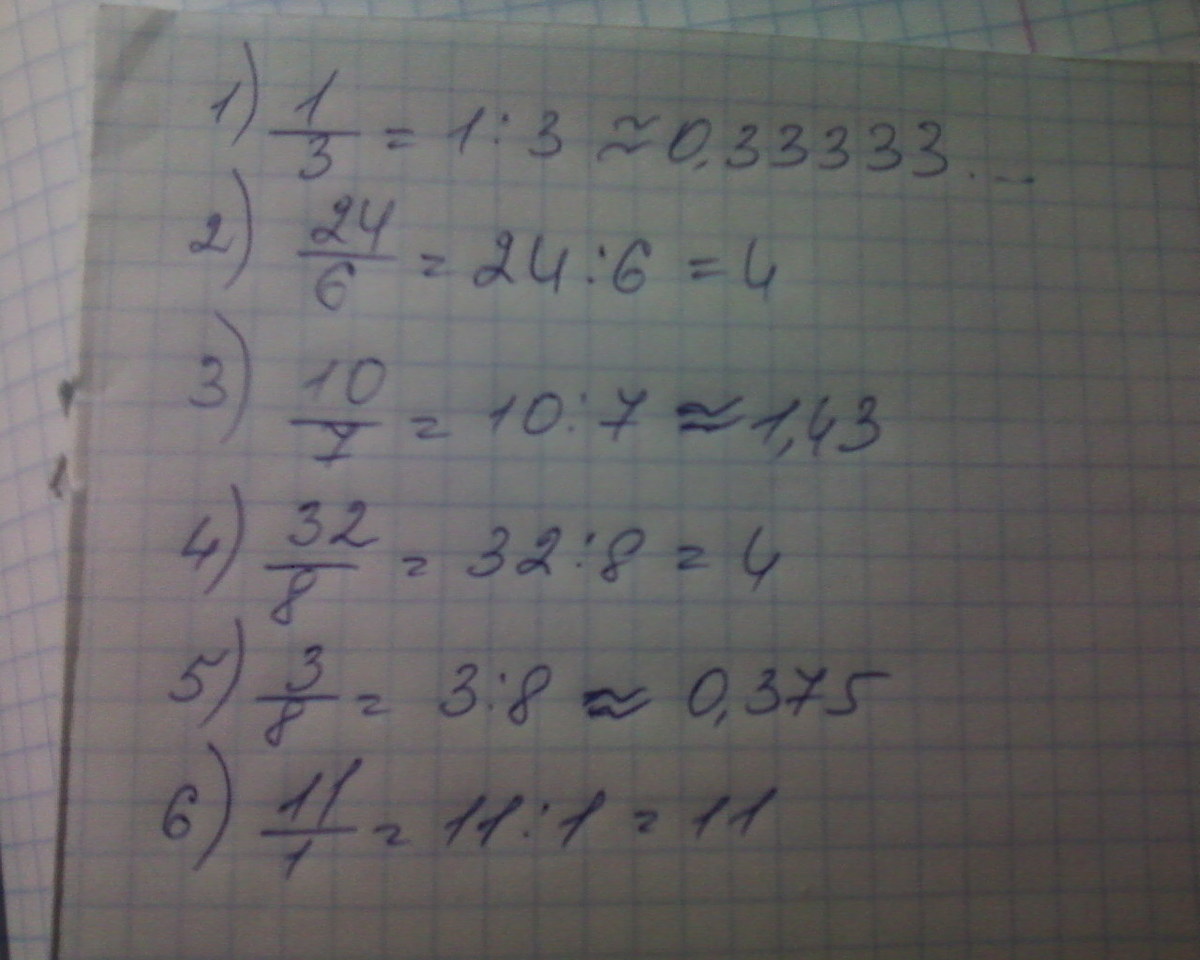 1) 1/3 = 1:3 ≈ 0,33333...
2) 24/6 = 24:6 = 4
3) 10/7 = 10:7 ≈ 1,43
4) 32/8 = 32:8 = 4
5) 3/8 = 3:8 ≈ 0,375
6) 11/1 = 11:1 = 11